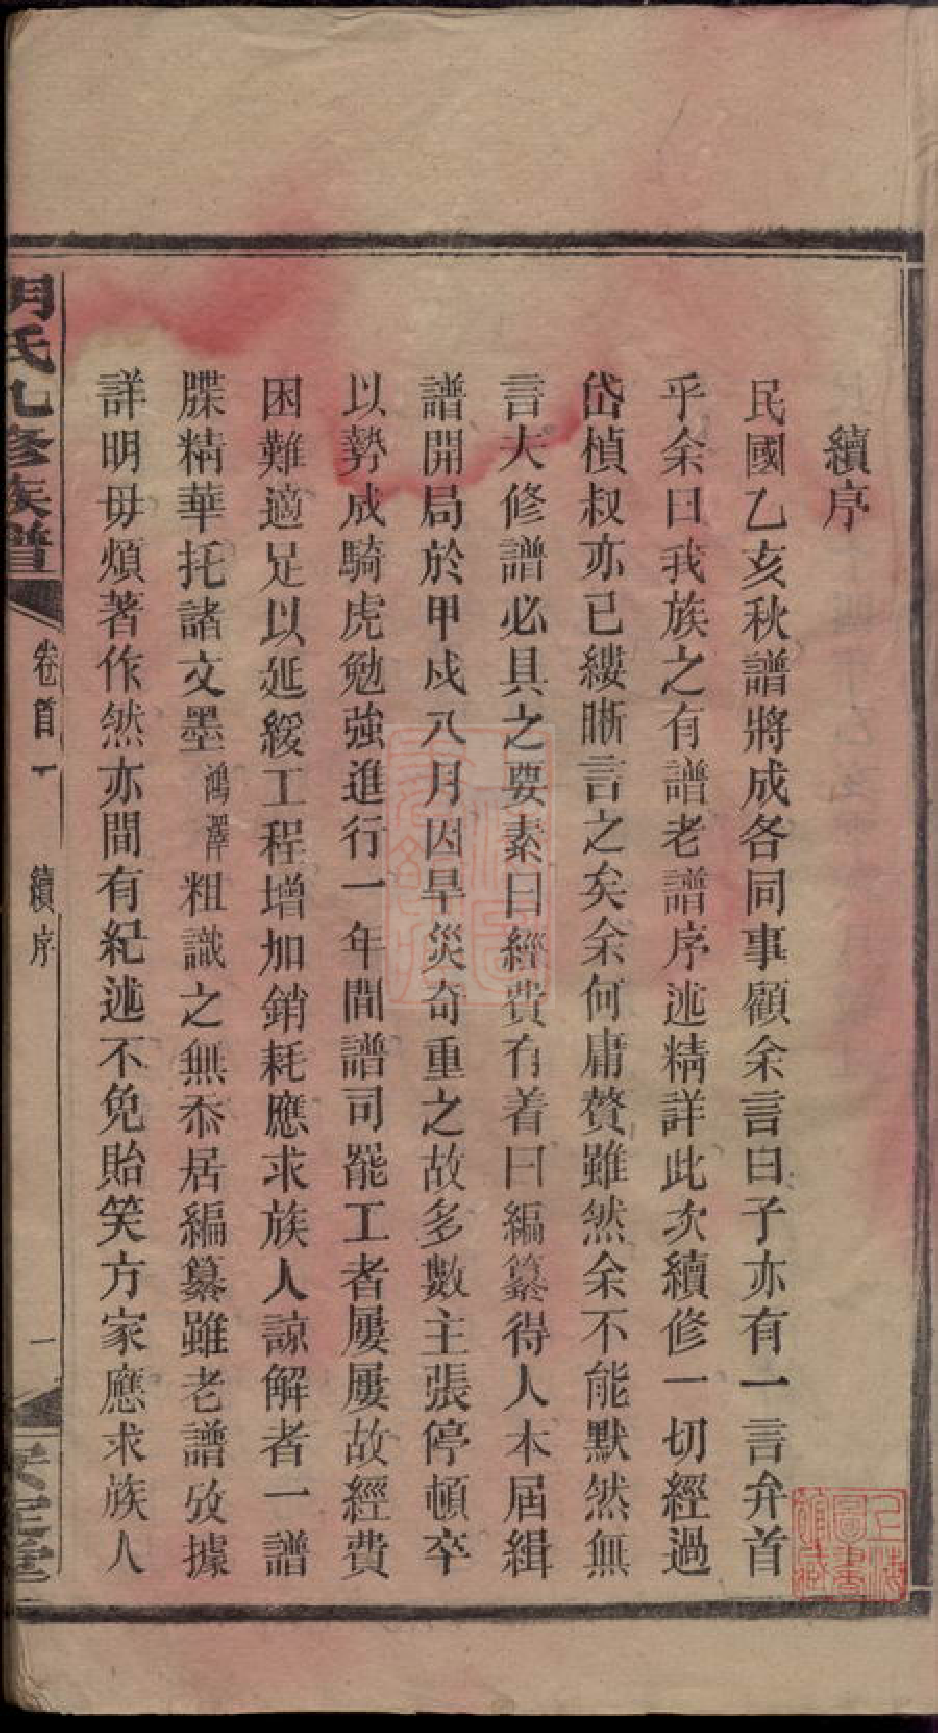 續序
民國乙亥秋譜將成各同事顧余言曰子亦有一言弁首
乎余曰我族之有譜老譜序述精詳此次續修一切經過
岱楨叔亦已縷晰言之矣余何庸贅雖然余不能默然無
言夫修譜必具之要素曰經費有着曰編纂得人本屆緝
譜開局於甲戍八月因旱災奇重之故多數主張停頓卒
以勢成騎虎勉強進行一年間譜司罷工者屢屢故經費
困難適足以延緩工程增加銷耗應求族人諒解者一譜
牒精華托諸文墨鴻澤粗識之無忝居編纂雖老譜攷據
詳明毋煩著作然亦間有紀述不免貽笑方家應求族人
氏九修族譜
卷首
續序
一
堂
上海圖書館藏